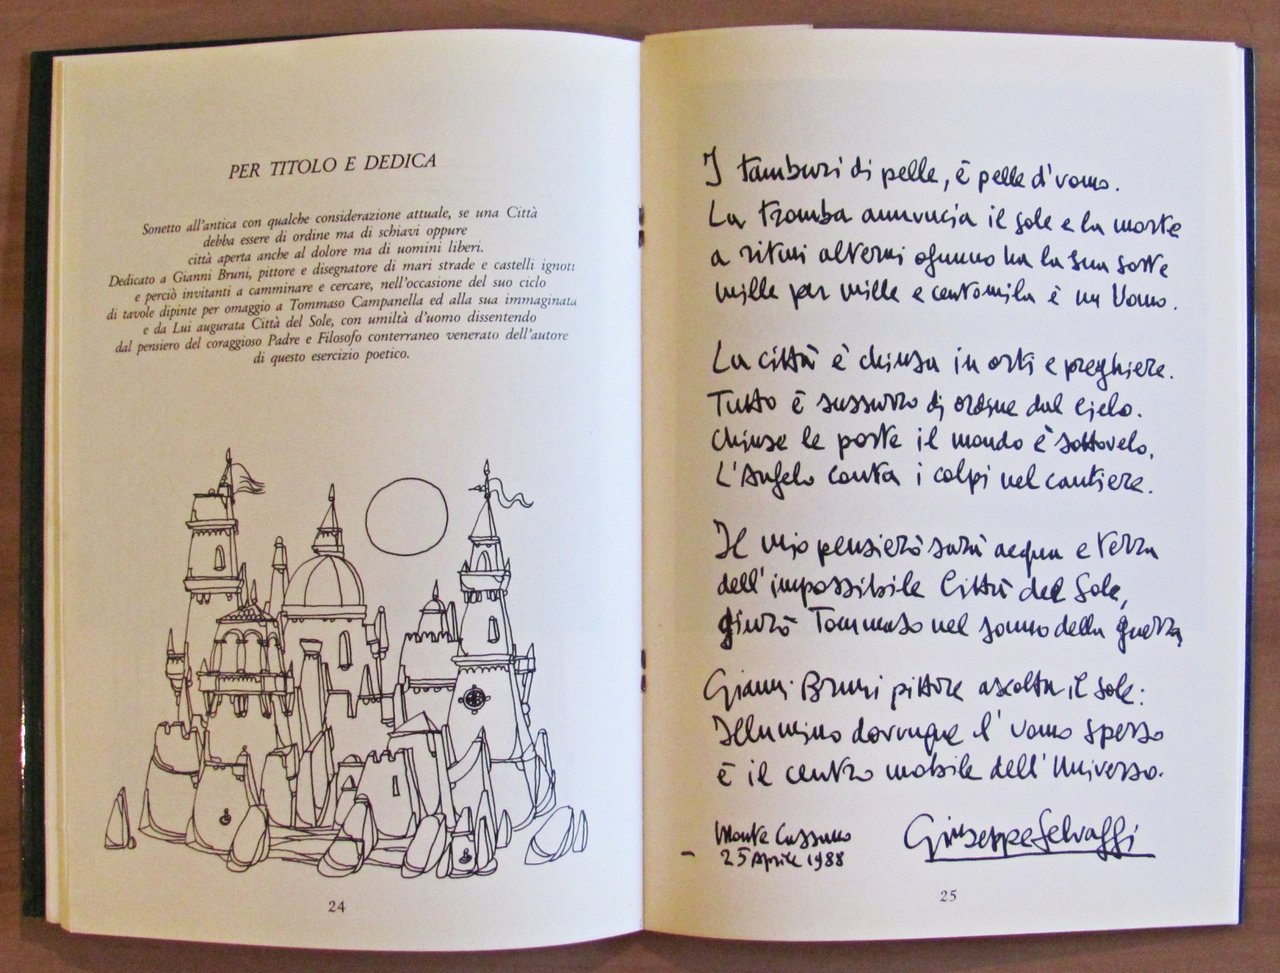 PER TITOLO E DEDICA
Sonetto all'antica con qualche considerazione attuale, se una Città
debba essere di ordine ma di schiavi oppure
città aperta anche al dolore ma di uomini liberi.
Dedicato a Gianni Bruni, pittore e disegnatore di mari strade e castelli ignoti
e perciò invitanti a camminare e cercare, nell'occasione del suo ciclo
di tavole dipinte per omaggio a Tommaso Campanella ed alla sua immaginata
e da Lui augurata Città del Sole, con umiltà d'uomo dissentendo
dal pensiero del coraggioso Padre e Filosofo conterraneo venerato dell'autore
di questo esercizio poetico.
24
I tamburi di pelle, è pelle d'uomo.
La tromba annuncia il sole e la morte
a ritmi alterni ognuno ha la sua sorte
mille per mille e centomila è un Uomo.
La città è chiusa in orti e preghiere.
Tutto è sussurro di ordine dal cielo.
Chiuse le porte il mondo è sottovelo,
L'Angelo conta i colpi nel cantiere.
Il mio pensiero sarà acqua e terra
dell'impossibile Città del Sole,
giurò Tommaso nel sonno della guerra
Gianni Bruni pittore ascolta il sole:
Illumino dovunque l'uomo sperso
è il centro mobile dell'Universo.
Monte Cassano
25 Aprile 1988
Giuseppe Selvaggi
25